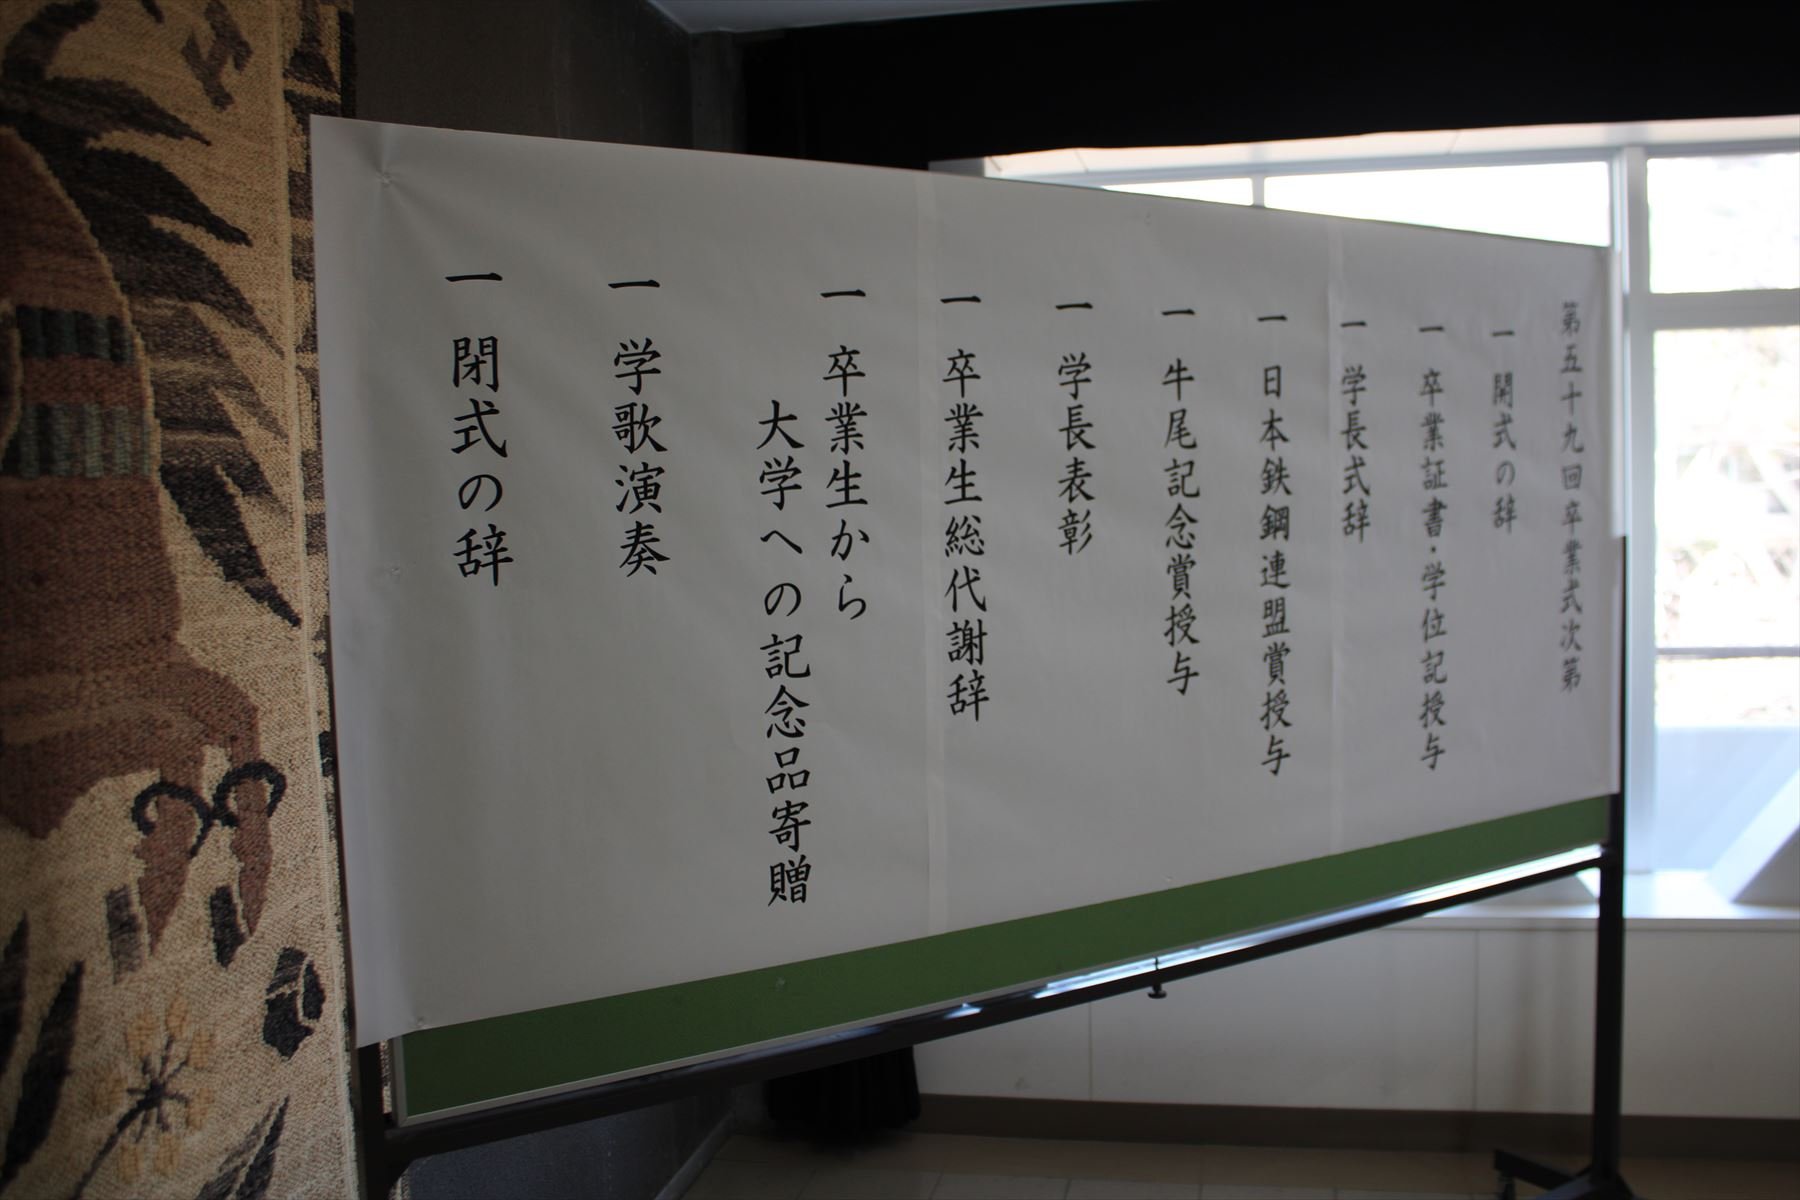 第五十九回卒業式次第
一 開式の辞
一 卒業証書・学位記授与
一 学長式辞
一 日本鉄鋼連盟賞授与
一 牛尾記念賞授与
一 学長表彰
一 卒業生総代謝辞
一 卒業生から
大学への記念品寄贈
一 学歌演奏
一 閉式の辞